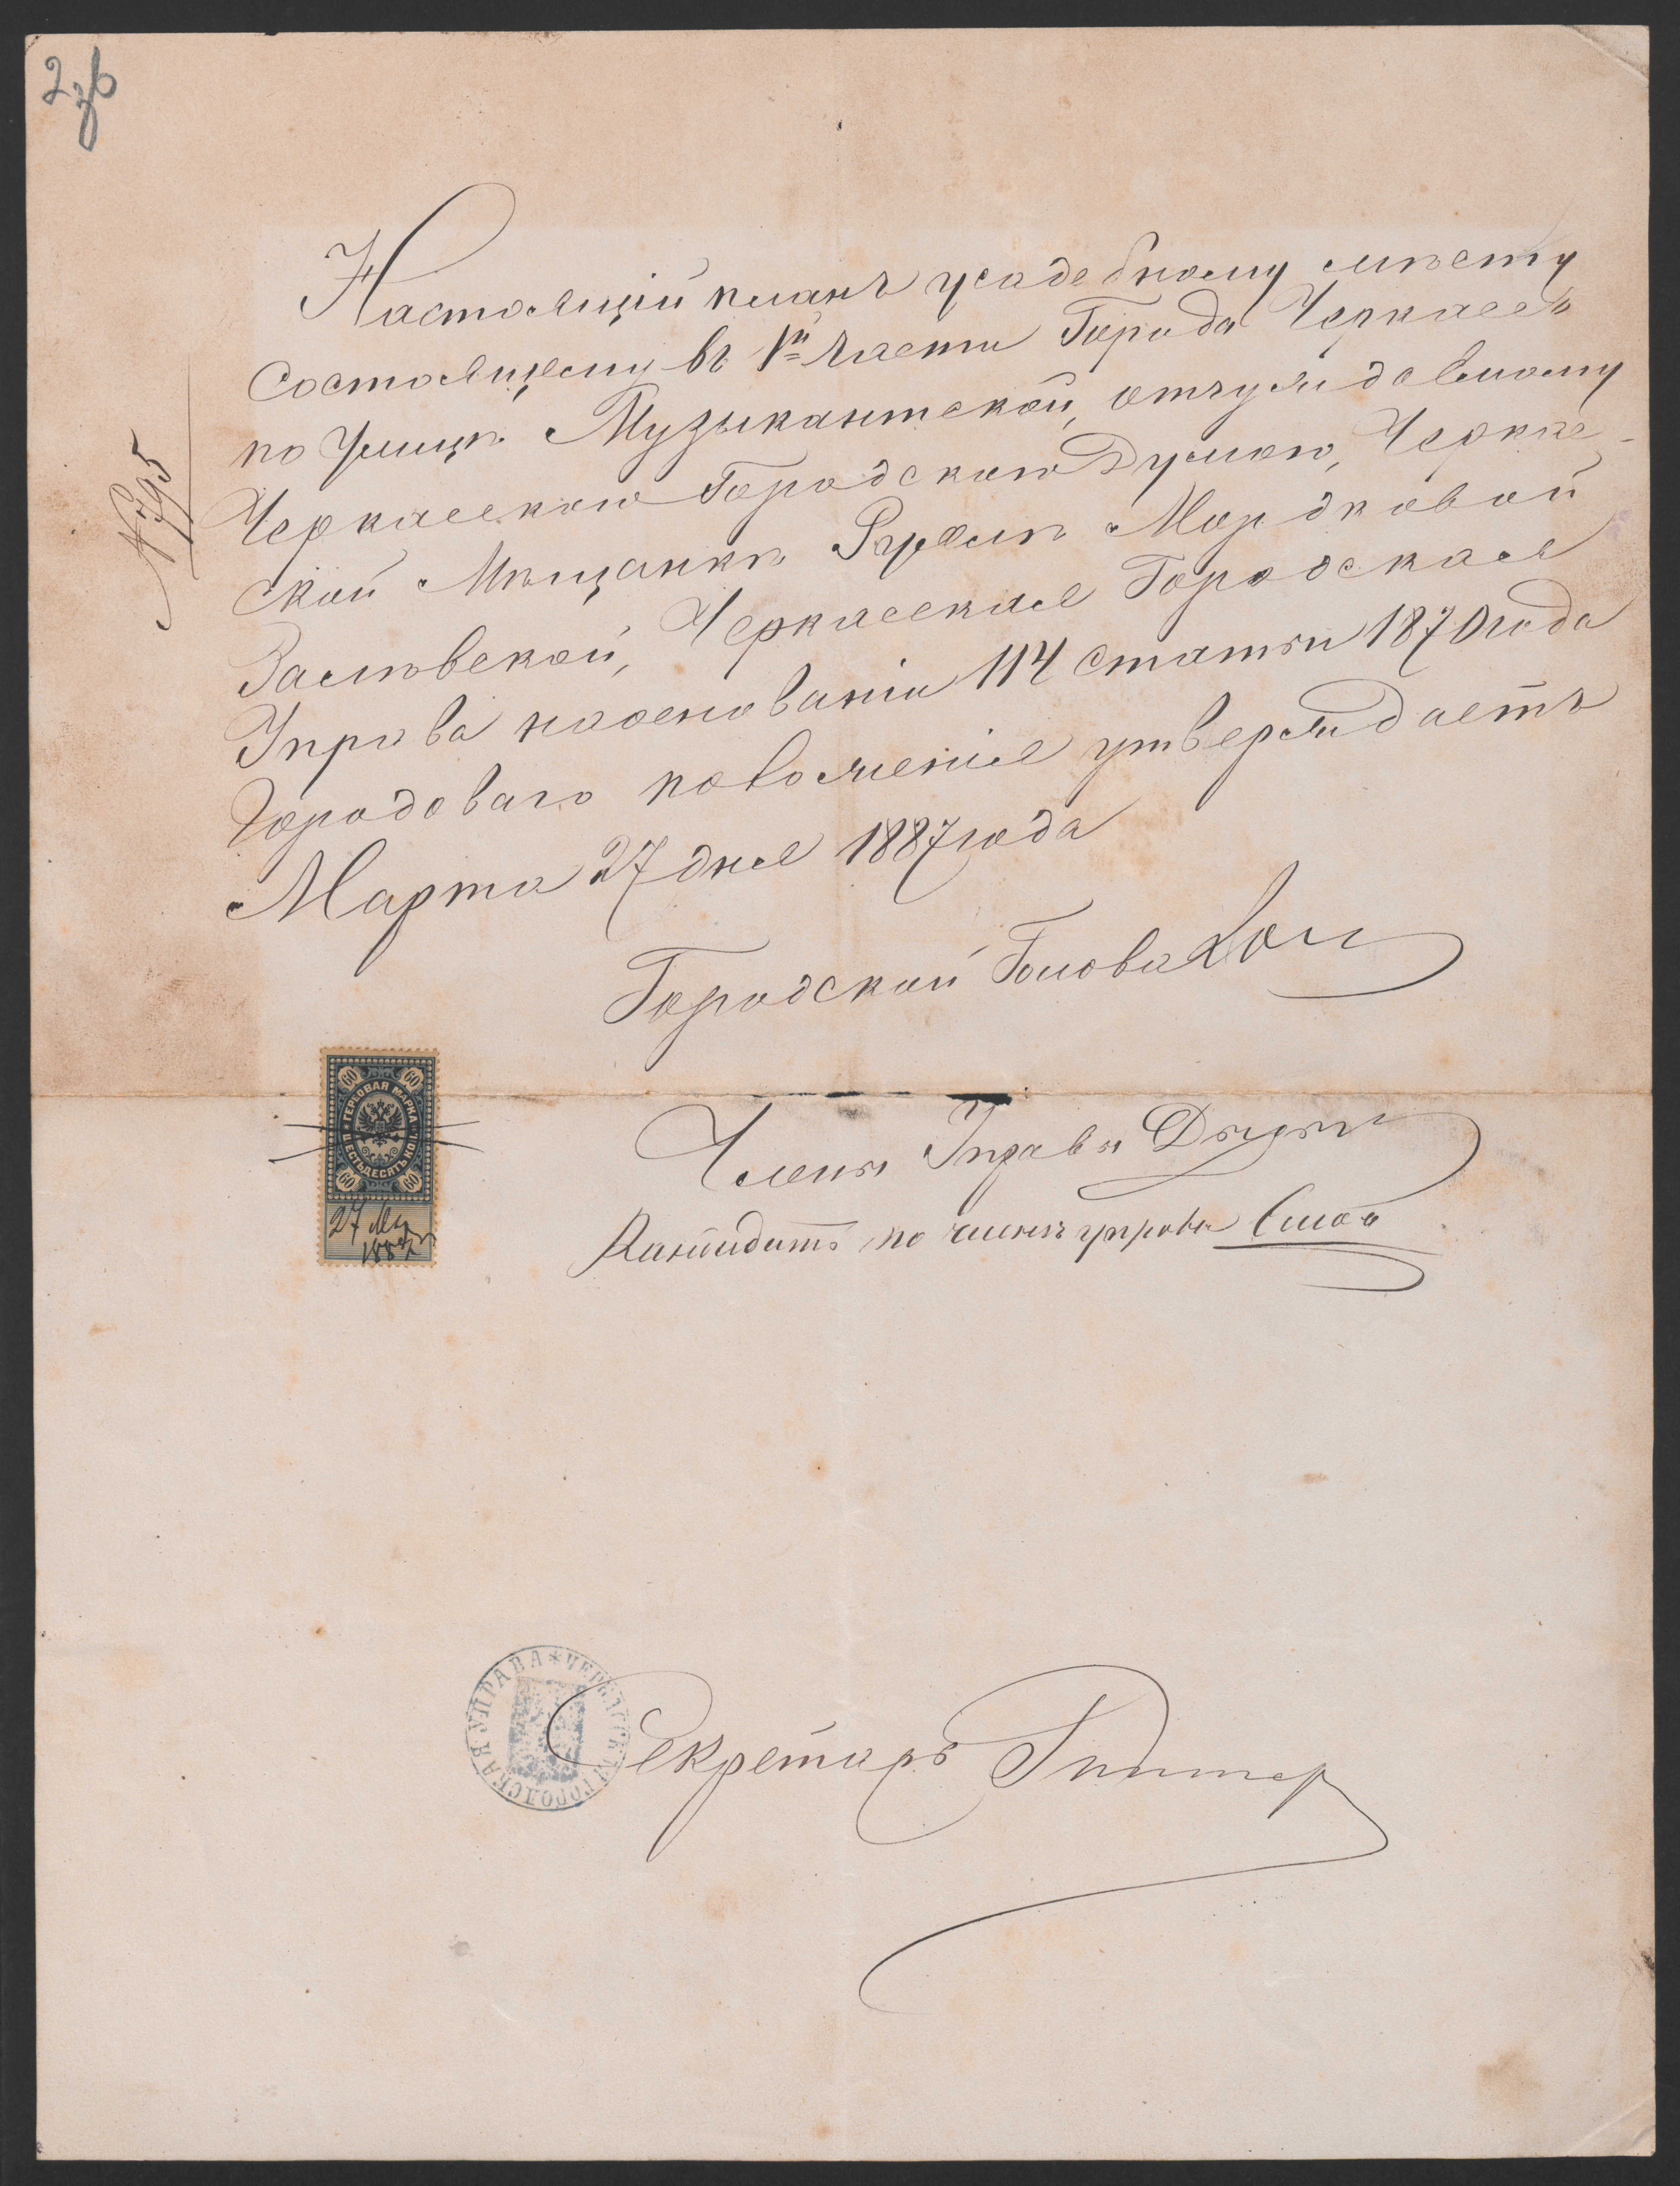 2 зв
№795
Настоящій планъ усадебному мѣсту
состоящему въ 1й части Города Черкассъ
по улицѣ Музыкантской, отчужденному
Черкасскою Городскою Думою, Черкас-
ской Мѣщанкѣ Рухлѣ Мордковой
Заславской, Черкасская Городская
Управа на основаніи 114 статьи 1870 года
Городоваго положенія утверждаетъ
Марта 27 дня 1887 года
Городской Голова
ГЕРБОВАЯ МАРКА
ШЕСТЬДЕСЯТЪ КОП.
60 60
60 60
27 Мар
1887
Члены Управы
Кандидатъ по членѣ управы
ЧЕРКАССКАЯ ГОРОДСКАЯ УПРАВА
Секретарь